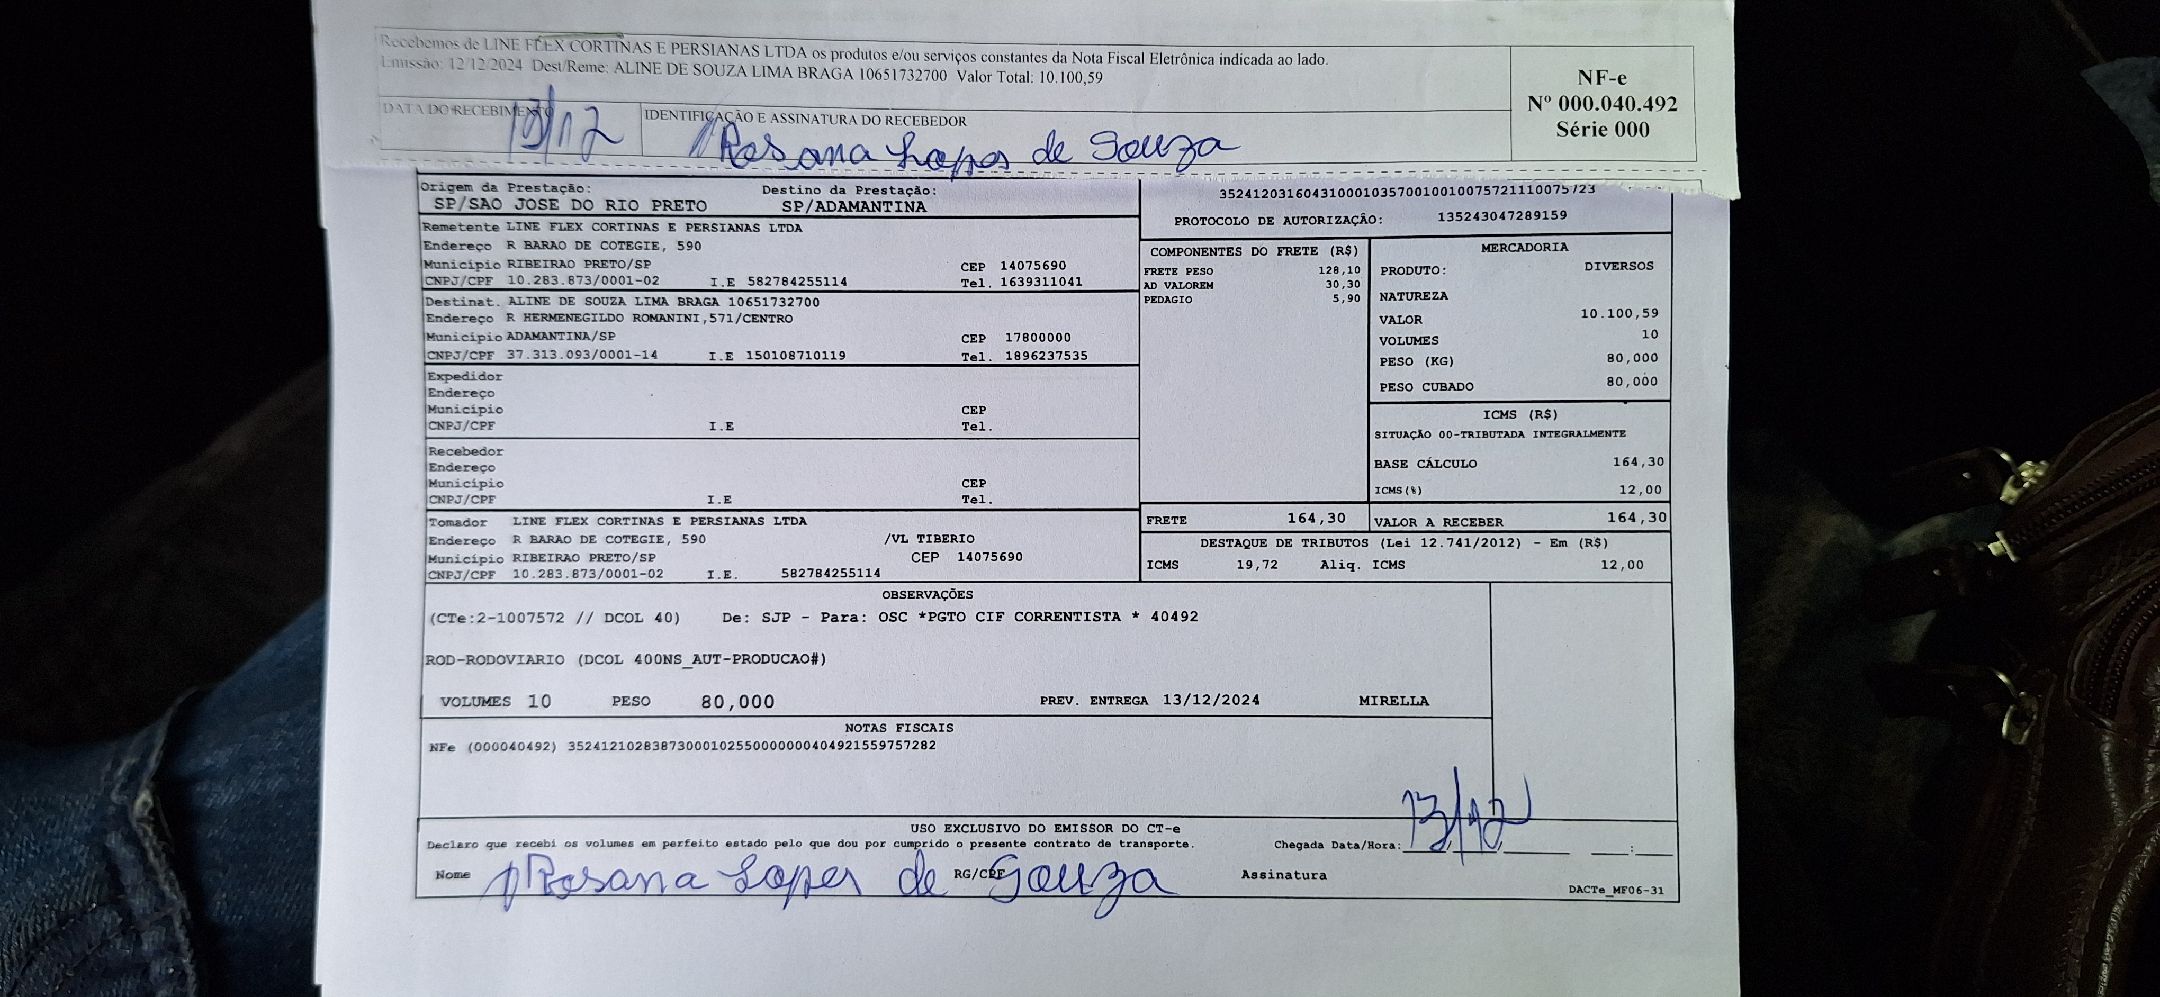 Recebemos de LINE FLEX CORTINAS E PERSIANAS LTDA os produtos e/ou serviços constantes da Nota Fiscal Eletrônica indicada ao lado.
Emissão: 12/12/2024 Dest/Reme: ALINE DE SOUZA LIMA BRAGA 10651732700 Valor Total: 10.100,59
NF-e
Nº 000.040.492
Série 000
DATA DO RECEBIMENTO
13/12
IDENTIFICAÇÃO E ASSINATURA DO RECEBEDOR
Rosana Lopes de Souza
Origem da Prestação: Destino da Prestação:
SP/SAO JOSE DO RIO PRETO SP/ADAMANTINA
PROTOCOLO DE AUTORIZAÇÃO: 135243047289159
Remetente LINE FLEX CORTINAS E PERSIANAS LTDA
Endereço R BARAO DE COTEGIE, 590
Município RIBEIRAO PRETO/SP CEP 14075690
CNPJ/CPF 10.283.873/0001-02 I.E 582784255114 Tel. 1639311041
Destinat. ALINE DE SOUZA LIMA BRAGA 10651732700
Endereço R HERMENEGILDO ROMANINI,571/CENTRO
Município ADAMANTINA/SP CEP 17800000
CNPJ/CPF 37.313.093/0001-14 I.E 150108710119 Tel. 1896237535
Expedidor
Endereço
Município CEP
CNPJ/CPF I.E Tel.
Recebedor
Endereço
Município CEP
CNPJ/CPF I.E Tel.
Tomador LINE FLEX CORTINAS E PERSIANAS LTDA
Endereço R BARAO DE COTEGIE, 590 /VL TIBERIO
Município RIBEIRAO PRETO/SP CEP 14075690
CNPJ/CPF 10.283.873/0001-02 I.E. 582784255114
COMPONENTES DO FRETE (R$)
FRETE PESO 128,10
AD VALOREM 30,30
PEDAGIO 5,90
MERCADORIA
PRODUTO: DIVERSOS
NATUREZA
VALOR 10.100,59
VOLUMES 10
PESO (KG) 80,000
PESO CUBADO 80,000
ICMS (R$)
SITUAÇÃO 00-TRIBUTADA INTEGRALMENTE
BASE CÁLCULO 164,30
ICMS(%) 12,00
FRETE 164,30 VALOR A RECEBER 164,30
DESTAQUE DE TRIBUTOS (Lei 12.741/2012) - Em (R$)
ICMS 19,72 Aliq. ICMS 12,00
OBSERVAÇÕES
(CTe:2-1007572 // DCOL 40) De: SJP - Para: OSC *PGTO CIF CORRENTISTA * 40492
ROD-RODOVIARIO (DCOL 400NS_AUT-PRODUCAO#)
VOLUMES 10 PESO 80,000 PREV. ENTREGA 13/12/2024 MIRELLA
NOTAS FISCAIS
NFe (000040492) 35241210283873000102550000000404921559757282
USO EXCLUSIVO DO EMISSOR DO CT-e
Declaro que recebi os volumes em perfeito estado pelo que dou por cumprido o presente contrato de transporte. Chegada Data/Hora: 13/12
Nome Rosana Lopes de Souza RG/CPF Assinatura
DACTe_MF06-31